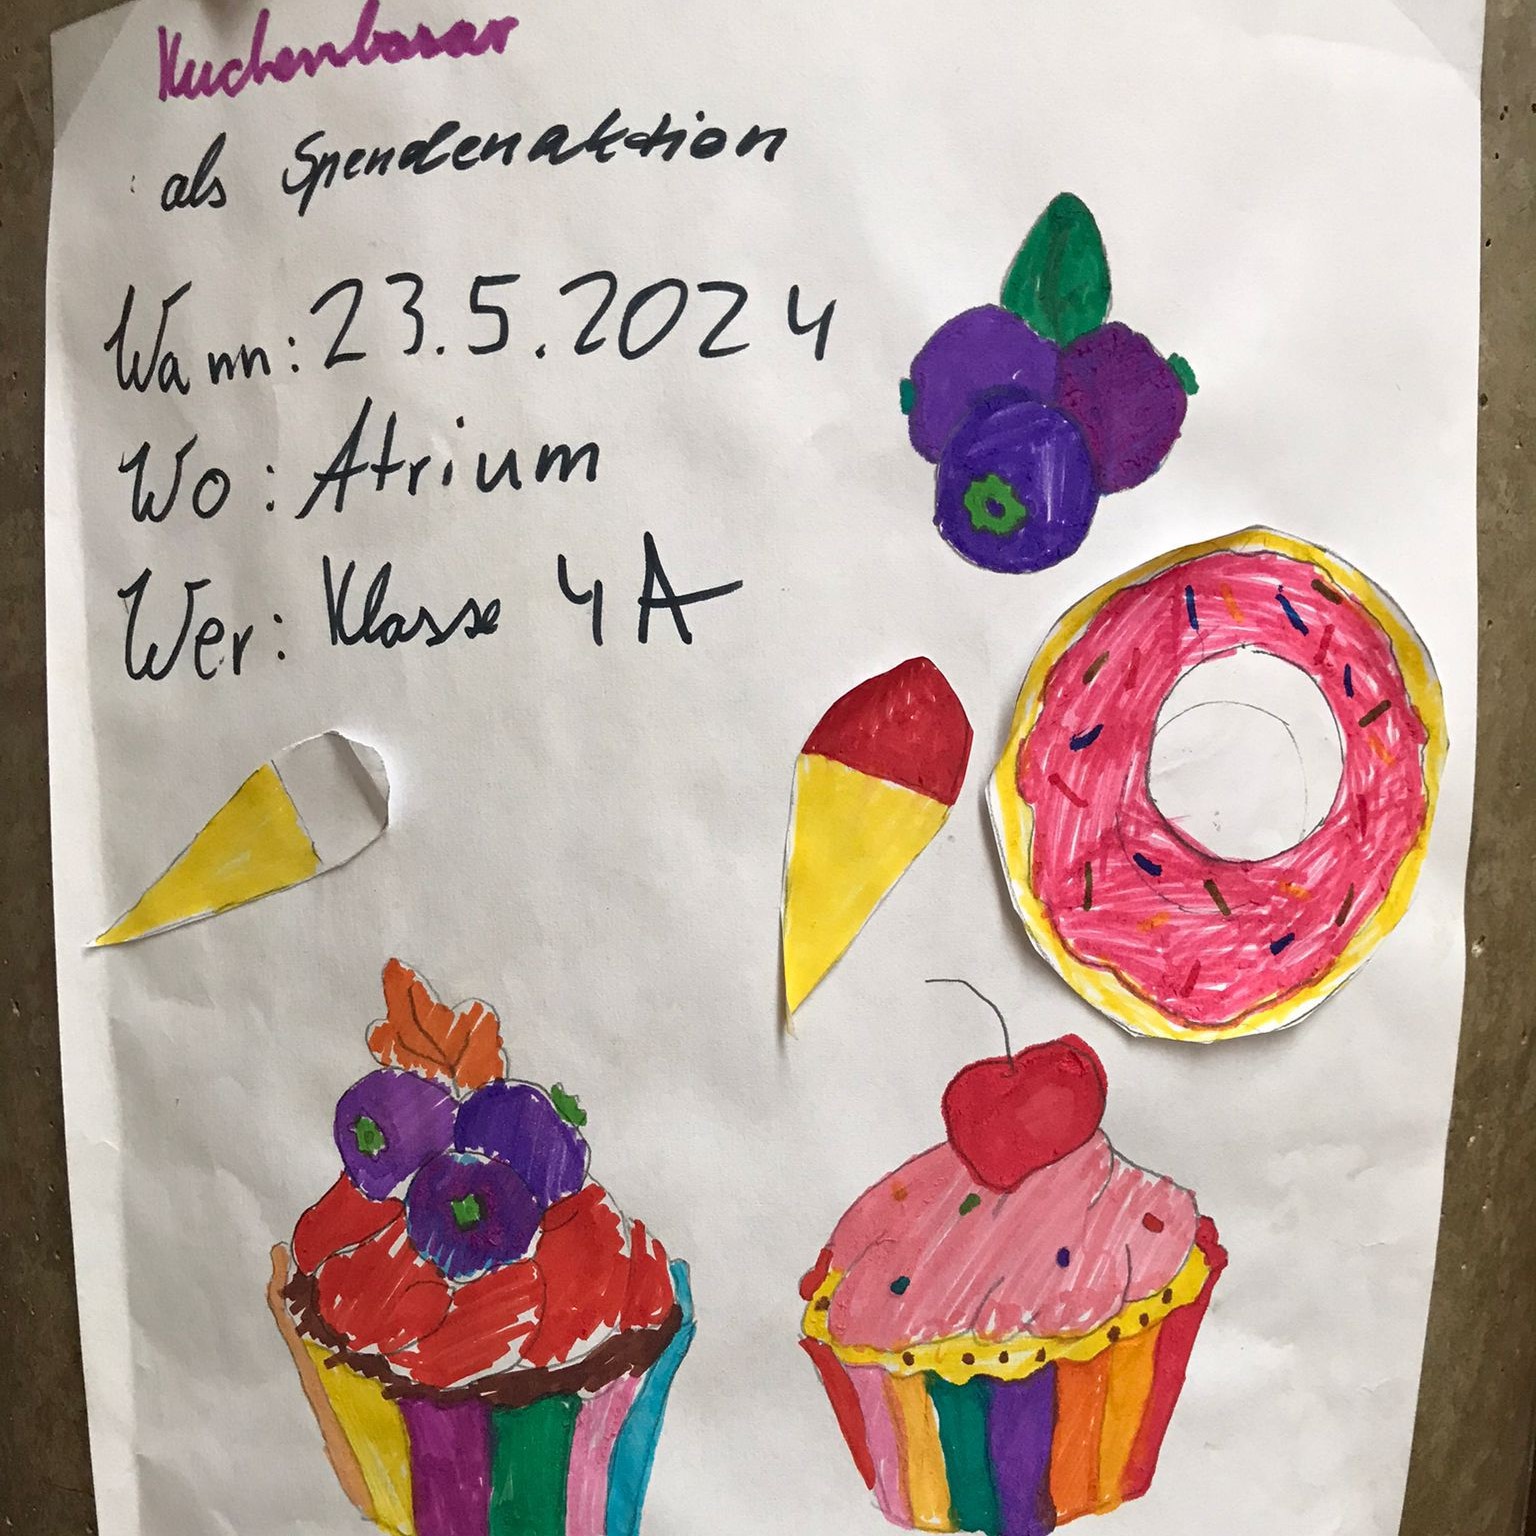 Kuchenbasar
als Spendenaktion
Wann: 23.5.2024
Wo: Atrium
Wer: Klasse 4A